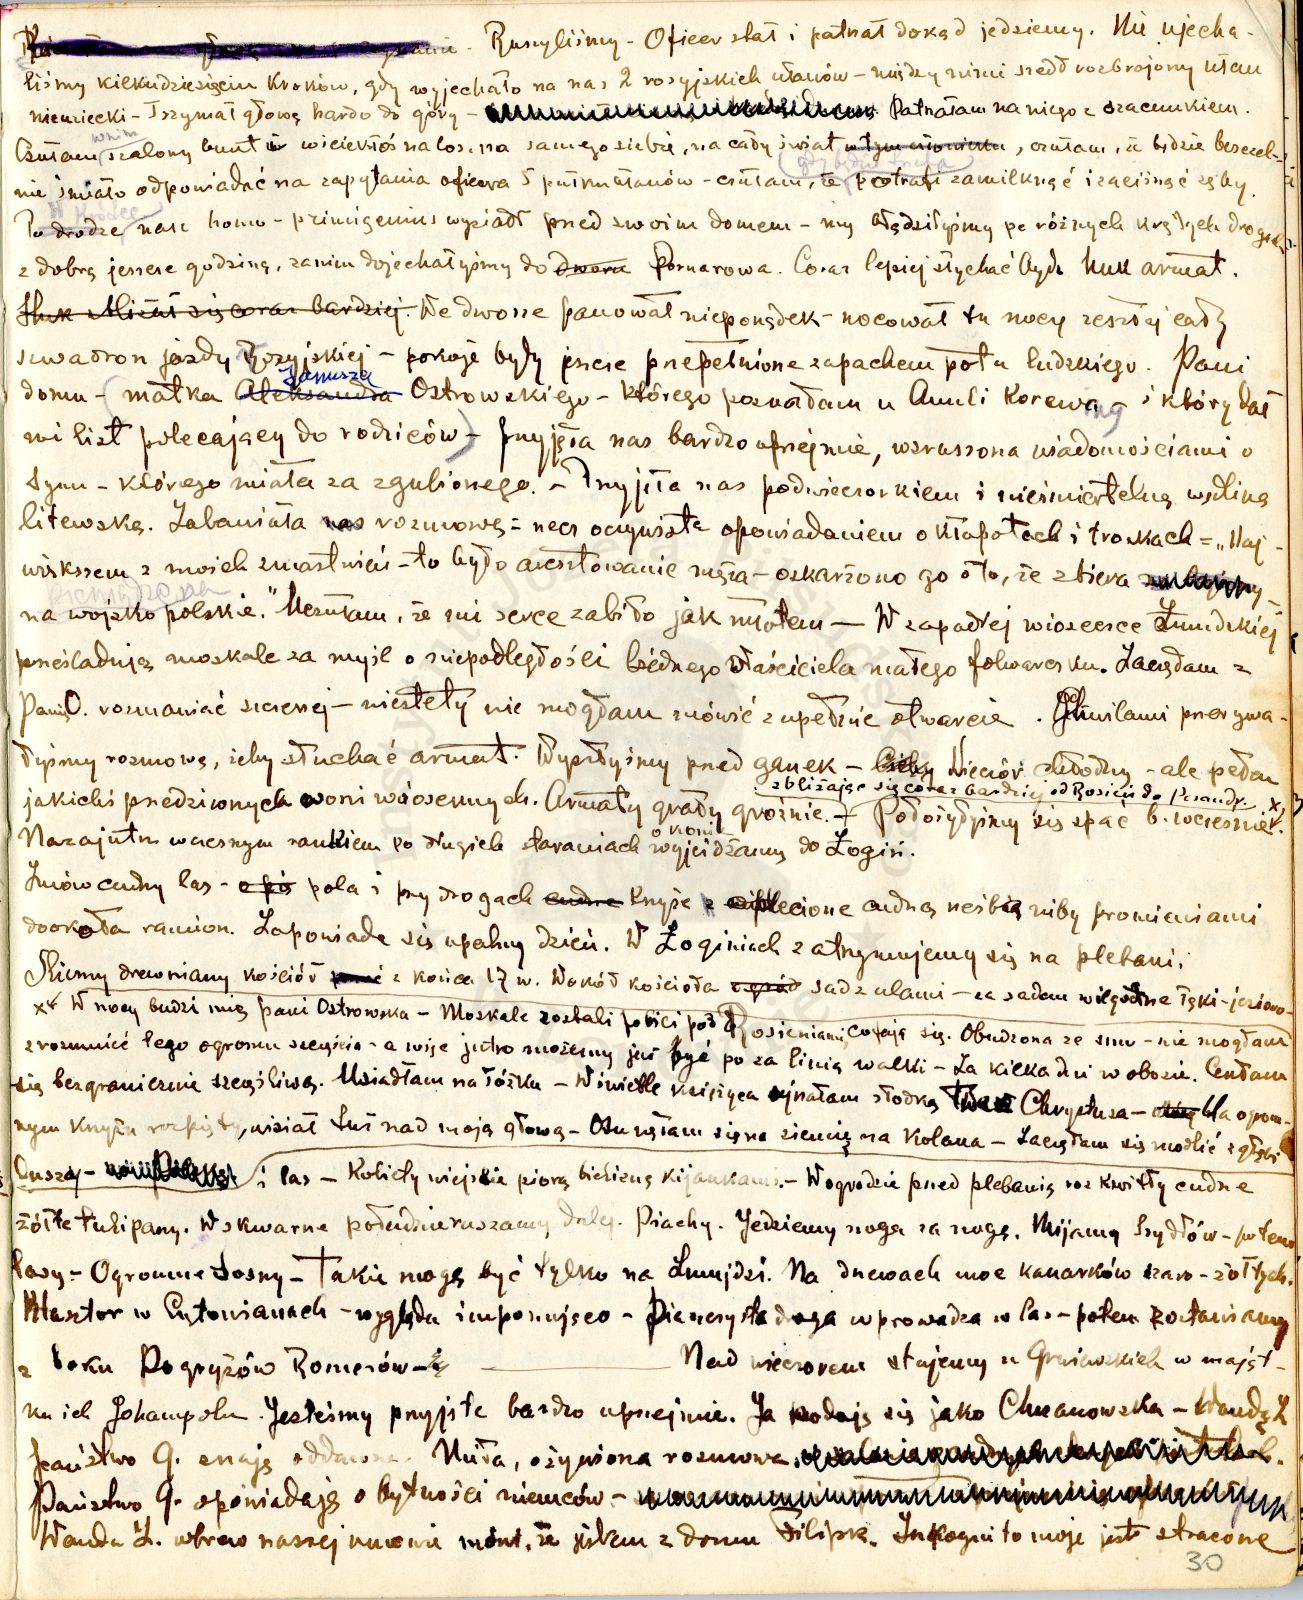 Ruszyliśmy - Oficer stał i patrzał dokąd jedziemy. Nie ujecha-
liśmy kilkudziesięciu kroków, gdy wyjechało na nas 2 rosyjskich ułanów - między nimi szedł rozbrojony ułan
niemiecki - Trzymał głowę hardo do góry - Patrzałam na niego z szacunkiem.
Czułam w nim szalony bunt i wściekłość na los, na samego siebie, na cały świat, czułam, że będzie bezczel-
nie śmiało odpowiadać na zapytania oficera i pułk. ułanów - czułam, że gdy będzie trzeba potrafi zamilknąć i zacisnąć zęby.
W Krótce nasz homo - primigenius wysiadł przed swoim domem - my błądziłyśmy po różnych krętych drogach
z dobrą jeszcze godzinę, zanim dojechałyśmy do dworu Pornarowa. Coraz lepiej słychać było huk armat.
Huk zbliżał się coraz bardziej. We dworze panował nieporządek - nocował tu nocy zeszłej cały
szwadron jazdy Rosyjskiej - pokoje były jeszcze przepełnione zapachem potu ludzkiego. Pani
domu - (matka Aleksandra Janusza Ostrowskiego - którego poznałam u Anuli Korewa - i który dał
mi list polecający do rodziców) - przyjęła nas bardzo uprzejmie, wzruszona wiadomościami o
synu - którego miała za zgubionego. - Przyjęła nas podwieczorkiem i nieśmiertelną wędliną
litewską. Zabawiała nas rozmową = opowiadaniem o kłopotach i troskach = "Naj-
większem z moich zmartwień - to było aresztowanie męża - oskarżono go o to, że zbiera
pieniądze na wojsko polskie." Uczułam, że mi serce zabiło jak młotem - W zapadłej wioseczce Żmudzkiej
prześladują moskale za myśl o niepodległości biednego właściciela małego folwarczku. Zaczęłam z
Panią O. rozmawiać szczerzej - niestety nie mogłam mówić zupełnie otwarcie. Chwilami przerywa-
łyśmy rozmowę, żeby słuchać armat. Wyszłyśmy przed ganek - Wieczór chłodny - ale pełen
jakichś przedziwnych woni wiosennych. Armaty grały groźnie. - zbliżając się coraz bardziej od Rosień do Położyłyśmy się spać b. wcześnie. x)
Nazajutrz wczesnym rankiem po długich staraniach o konie wyjeżdżamy do Łogiń.
Znów cudny las - pola i przy drogach cudne krzyże z plecione cudną rzeźbą niby promieniami
dookoła ramion. Zapowiada się upalny dzień. W Łoginiach zatrzymujemy się na plebani.
Śliczny drewniany kościół z końca 17 w. Wokół kościoła ogród sad z ulami - za sadem wilgotne łąki - jezioro -
x) W nocy budzi mię pani Ostrowska - Moskale zostali pobici pod Rosieniami, cofają się. Obudzona ze snu - nie mogłam
zrozumieć tego ogromu szczęścia - a więc jutro możemy już być po za linią walki - Za kilka dni w obozie. Czułam
się bezgranicznie szczęśliwą. Usiadłam na łóżku - W świetle księżyca ujrzałam słodką twarz Chrystusa - Na ogrom-
nym krzyżu rozpięty, wisiał tuż nad moją głową - Osunęłam się na ziemię na kolana - Zaczęłam się modlić z głębi
duszy - i las - Kobiety wiejskie piorą bieliznę kijankami. - W ogrodzie przed plebanią rozkwitły cudne
żółte tulipany. W skwarne południe ruszamy dalej. Piachy. Jedziemy noga za nogą. Mijamy Szydłów - potem
lasy - Ogromne sosny - Takie mogą być tylko na Żmujdzi. Na drzewach moc kanarków szaro-żółtych.
Klasztor w Cytowianach - wygląda imponująco - Piaszczysta droga wprowadza w las - potem zostawiamy
z boku Pogryżów Romerów - Nad wieczorem stajemy u Grużewskich w mająt-
ku ich Johampolu. Jesteśmy przyjęte bardzo uprzejmie. Ja podaję się jako Chrzanowska - Wandę Z.
Państwo G. znają oddawna. Miła, ożywiona rozmowa.
Państwo G. opowiadają o bytności niemców -
Wanda Z. wbrew naszej umowie mówi, że jestem z domu Filipk. Inkognito moje jest stracone
30